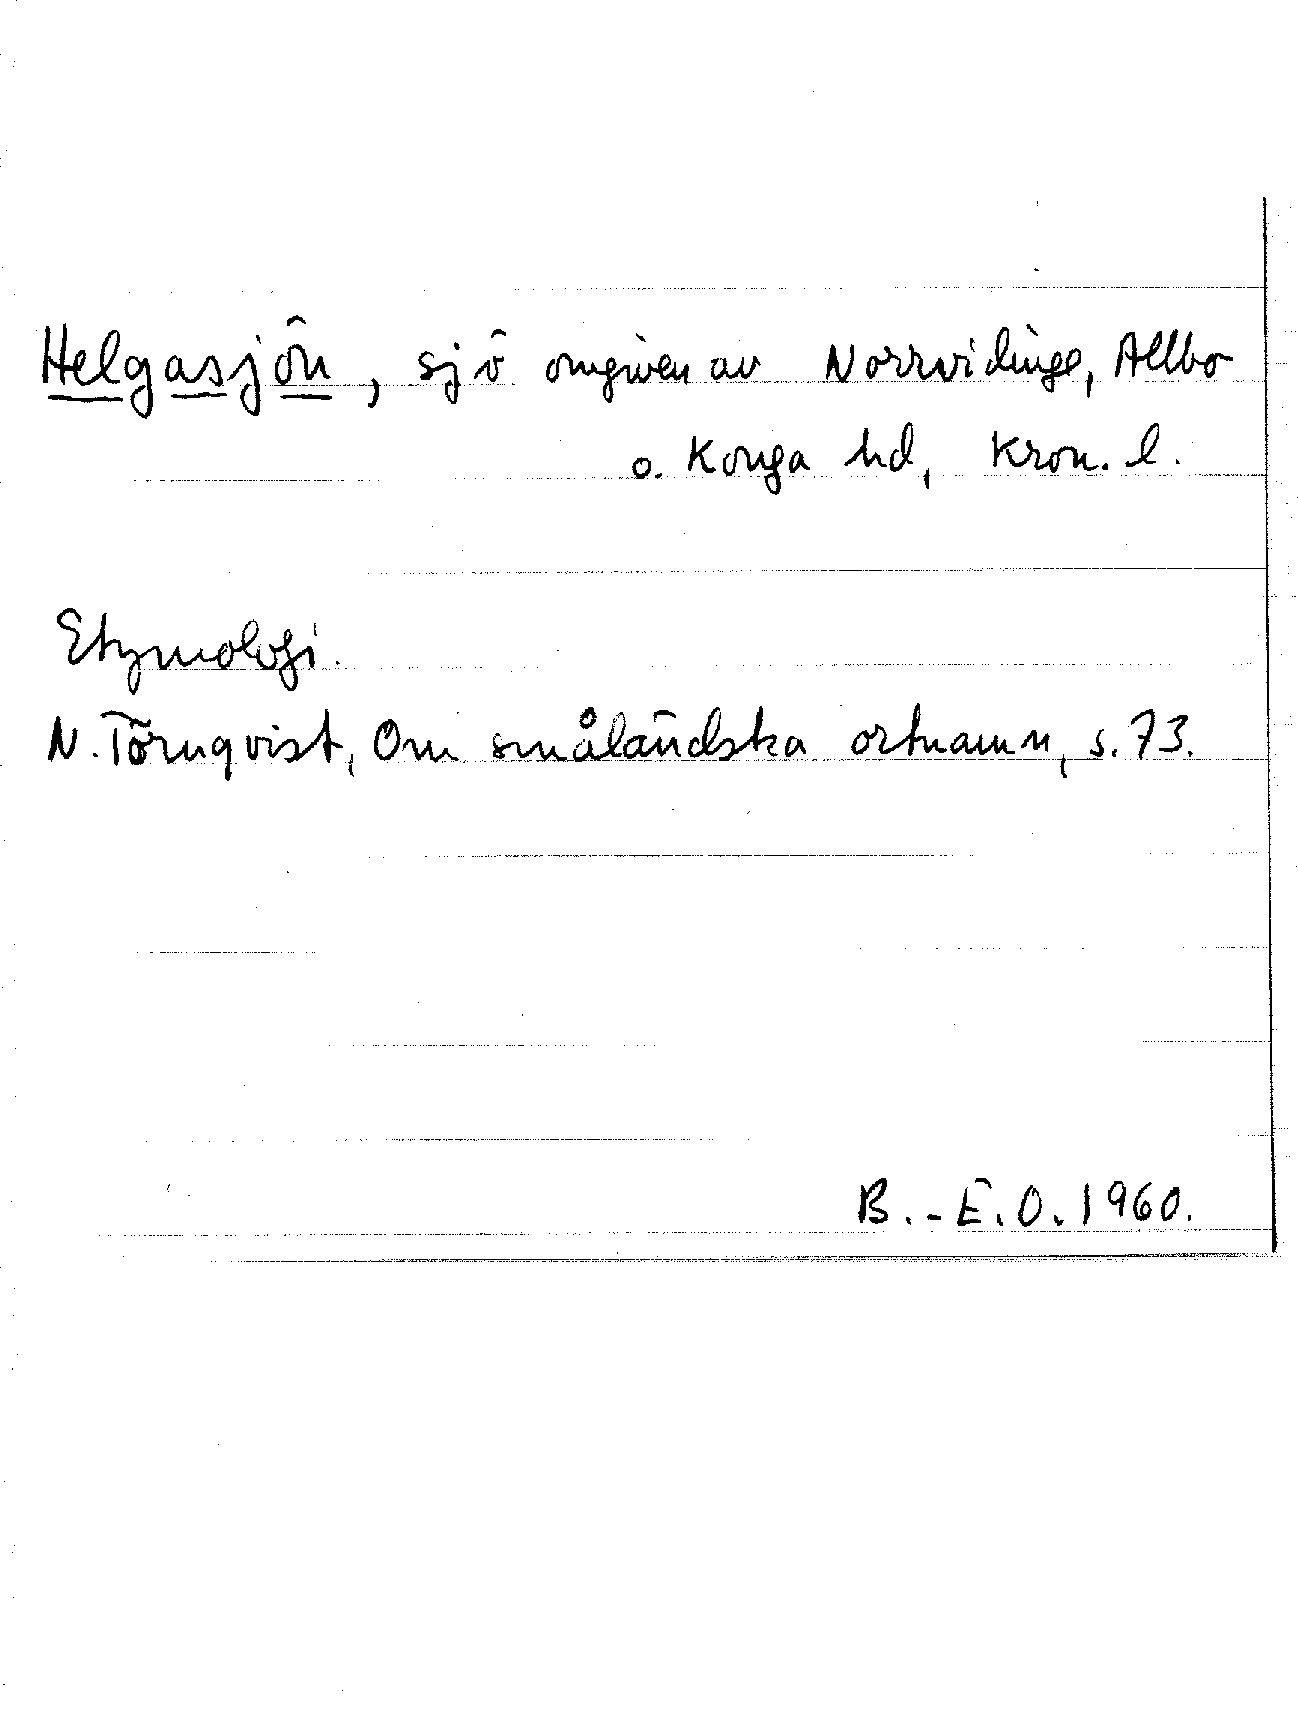 Helgasjön, sjö omgiven av Norrvidinge, Allbo
o. Konga hd, Kron. l.
Etymologi.
N. Törnqvist, Om småländska ortnamn, s. 73.
B.-E.O. 1960.